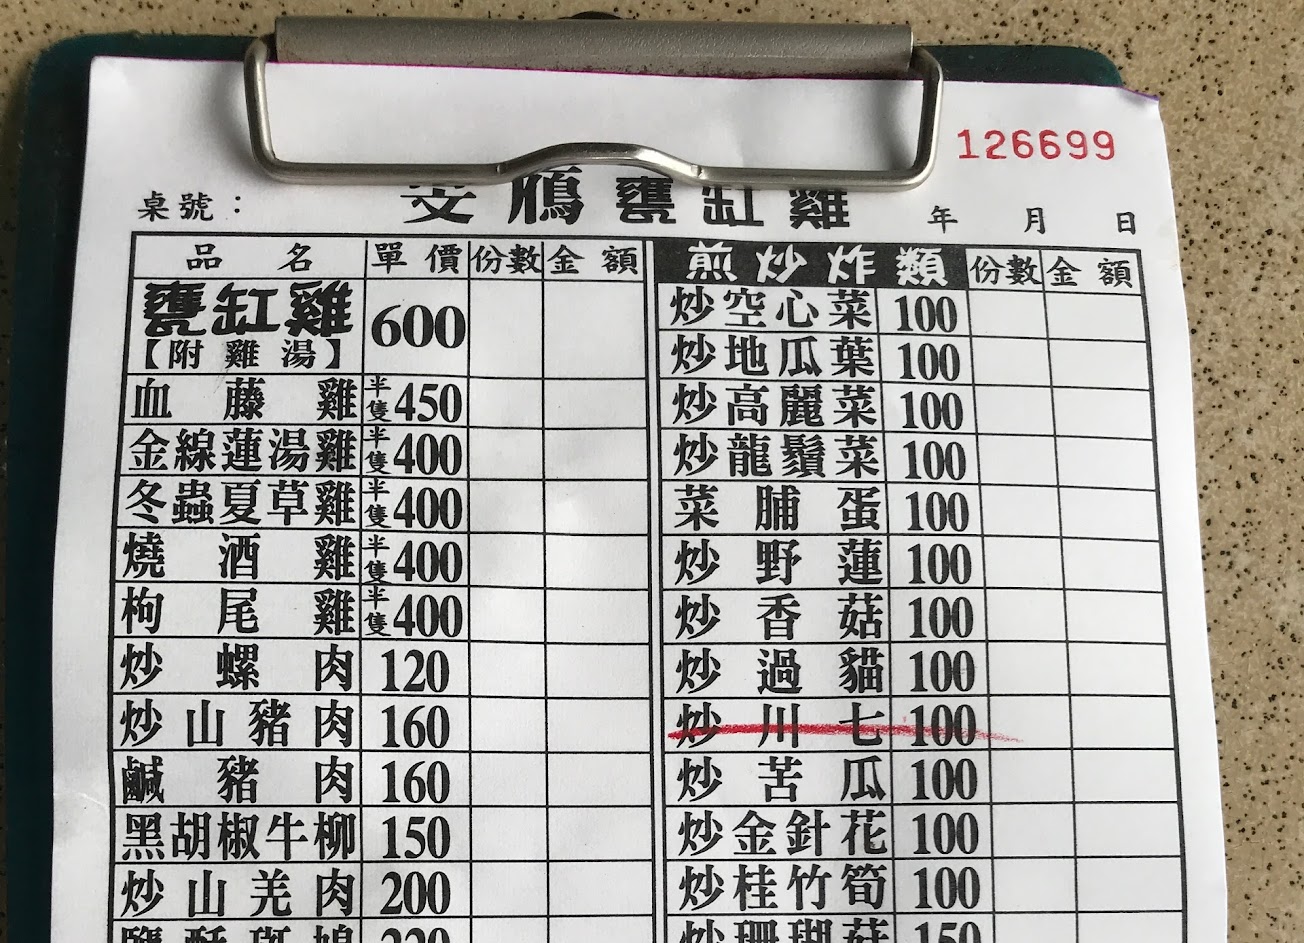 126699
雁甕缸雞
桌號：
年 月 日
品名 單價 份數 金額
甕缸雞 600
【附雞湯】
血藤雞 半隻 450
金線蓮湯雞 半隻 400
冬蟲夏草雞 半隻 400
燒酒雞 半隻 400
枸尾雞 半隻 400
炒螺肉 120
炒山豬肉 160
鹹豬肉 160
黑胡椒牛柳 150
炒山羌肉 200
220
煎炒炸類 份數 金額
炒空心菜 100
炒地瓜葉 100
炒高麗菜 100
炒龍鬚菜 100
菜脯蛋 100
炒野蓮 100
炒香菇 100
炒過貓 100
炒川七 100
炒苦瓜 100
炒金針花 100
炒桂竹筍 100
炒珊瑚菇 150